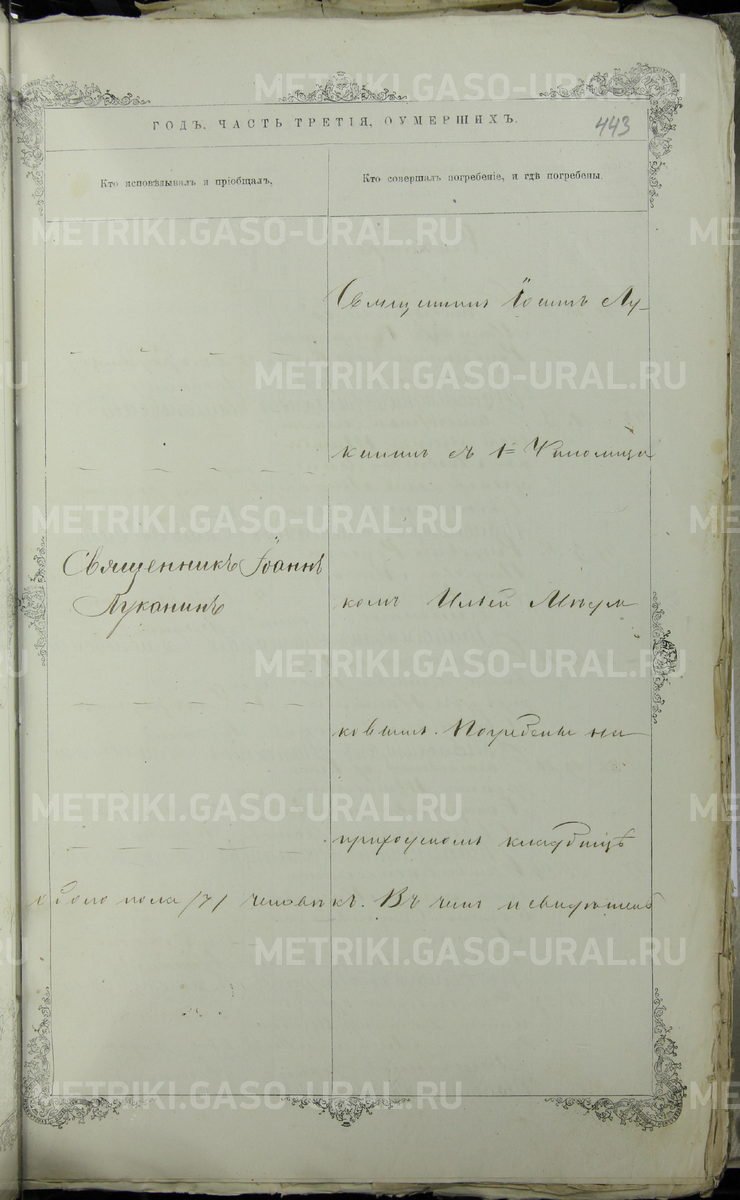 ГОДЪ, ЧАСТЬ ТРЕТІЯ, ОУМЕРШИХЪ.
443
Кто исповѣдывалъ и пріобщалъ,
Кто совершалъ погребеніе, и гдѣ погребены.
Священникъ Іоаннъ Лу-
канинъ съ
Священникъ Іоаннъ
Луканинъ
комъ Ильей
ковымъ. Погребены на
приходскомъ кладбищѣ
обоего пола /7/ человѣкъ. Въ чемъ и свидѣтель
METRIKI.GASO-URAL.RU